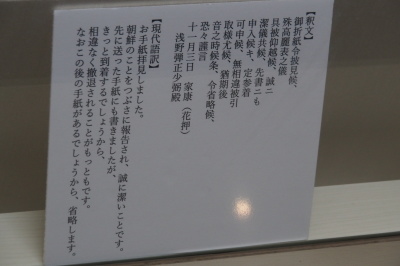 【釈文】
御折紙令披見候、
殊高麗表之儀
具被仰越候、誠ニ
潔儀共候、先書ニも
申入候キ、定参着
可申候、無相違被引
取様尤候、猶期後
音之時候条、令省略候、
恐々謹言
十一月三日 家康(花押)
浅野弾正少弼殿
【現代語訳】
お手紙拝見しました。
朝鮮のことをつぶさに報告され、誠に潔いことです。
先に送った手紙にも書きましたが、
きっと到着するでしょうから、
相違なく撤退されることがもっともです。
なおこの後の手紙があるでしょうから、省略します。